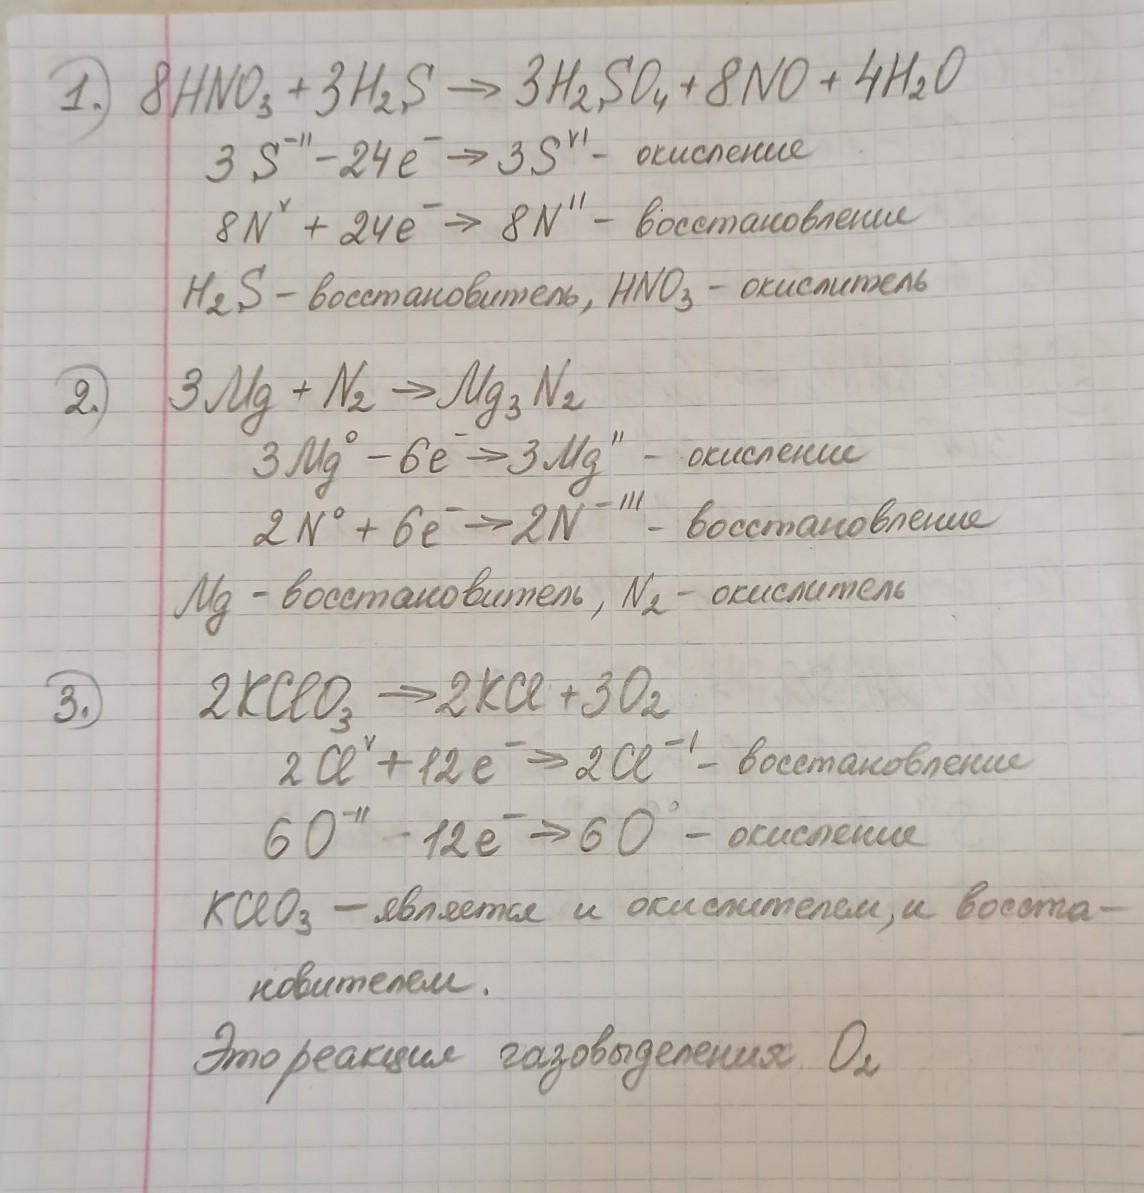 1. 8HNO₃ + 3H₂S → 3H₂SO₄ + 8NO + 4H₂O
3S⁻ᴵᴵ - 24e⁻ → 3Sⱽᴵ - окисление
8Nⱽ + 24e⁻ → 8Nᴵᴵ - восстановление
H₂S - восстановитель, HNO₃ - окислитель
2. 3Mg + N₂ → Mg₃N₂
3Mg⁰ - 6e⁻ → 3Mgᴵᴵ - окисление
2N⁰ + 6e⁻ → 2N⁻ᴵᴵᴵ - восстановление
Mg - восстановитель, N₂ - окислитель
3. 2KClO₃ → 2KCl + 3O₂
2Clⱽ + 12e⁻ → 2Cl⁻ᴵ - восстановление
6O⁻ᴵᴵ - 12e⁻ → 6O⁰ - окисление
KClO₃ - является и окислителем, и восста-
новителем.
Это реакция газовыделения O₂